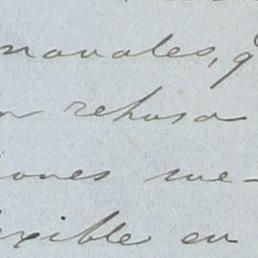 navales, q
n rehusa
iones me-
lexible en